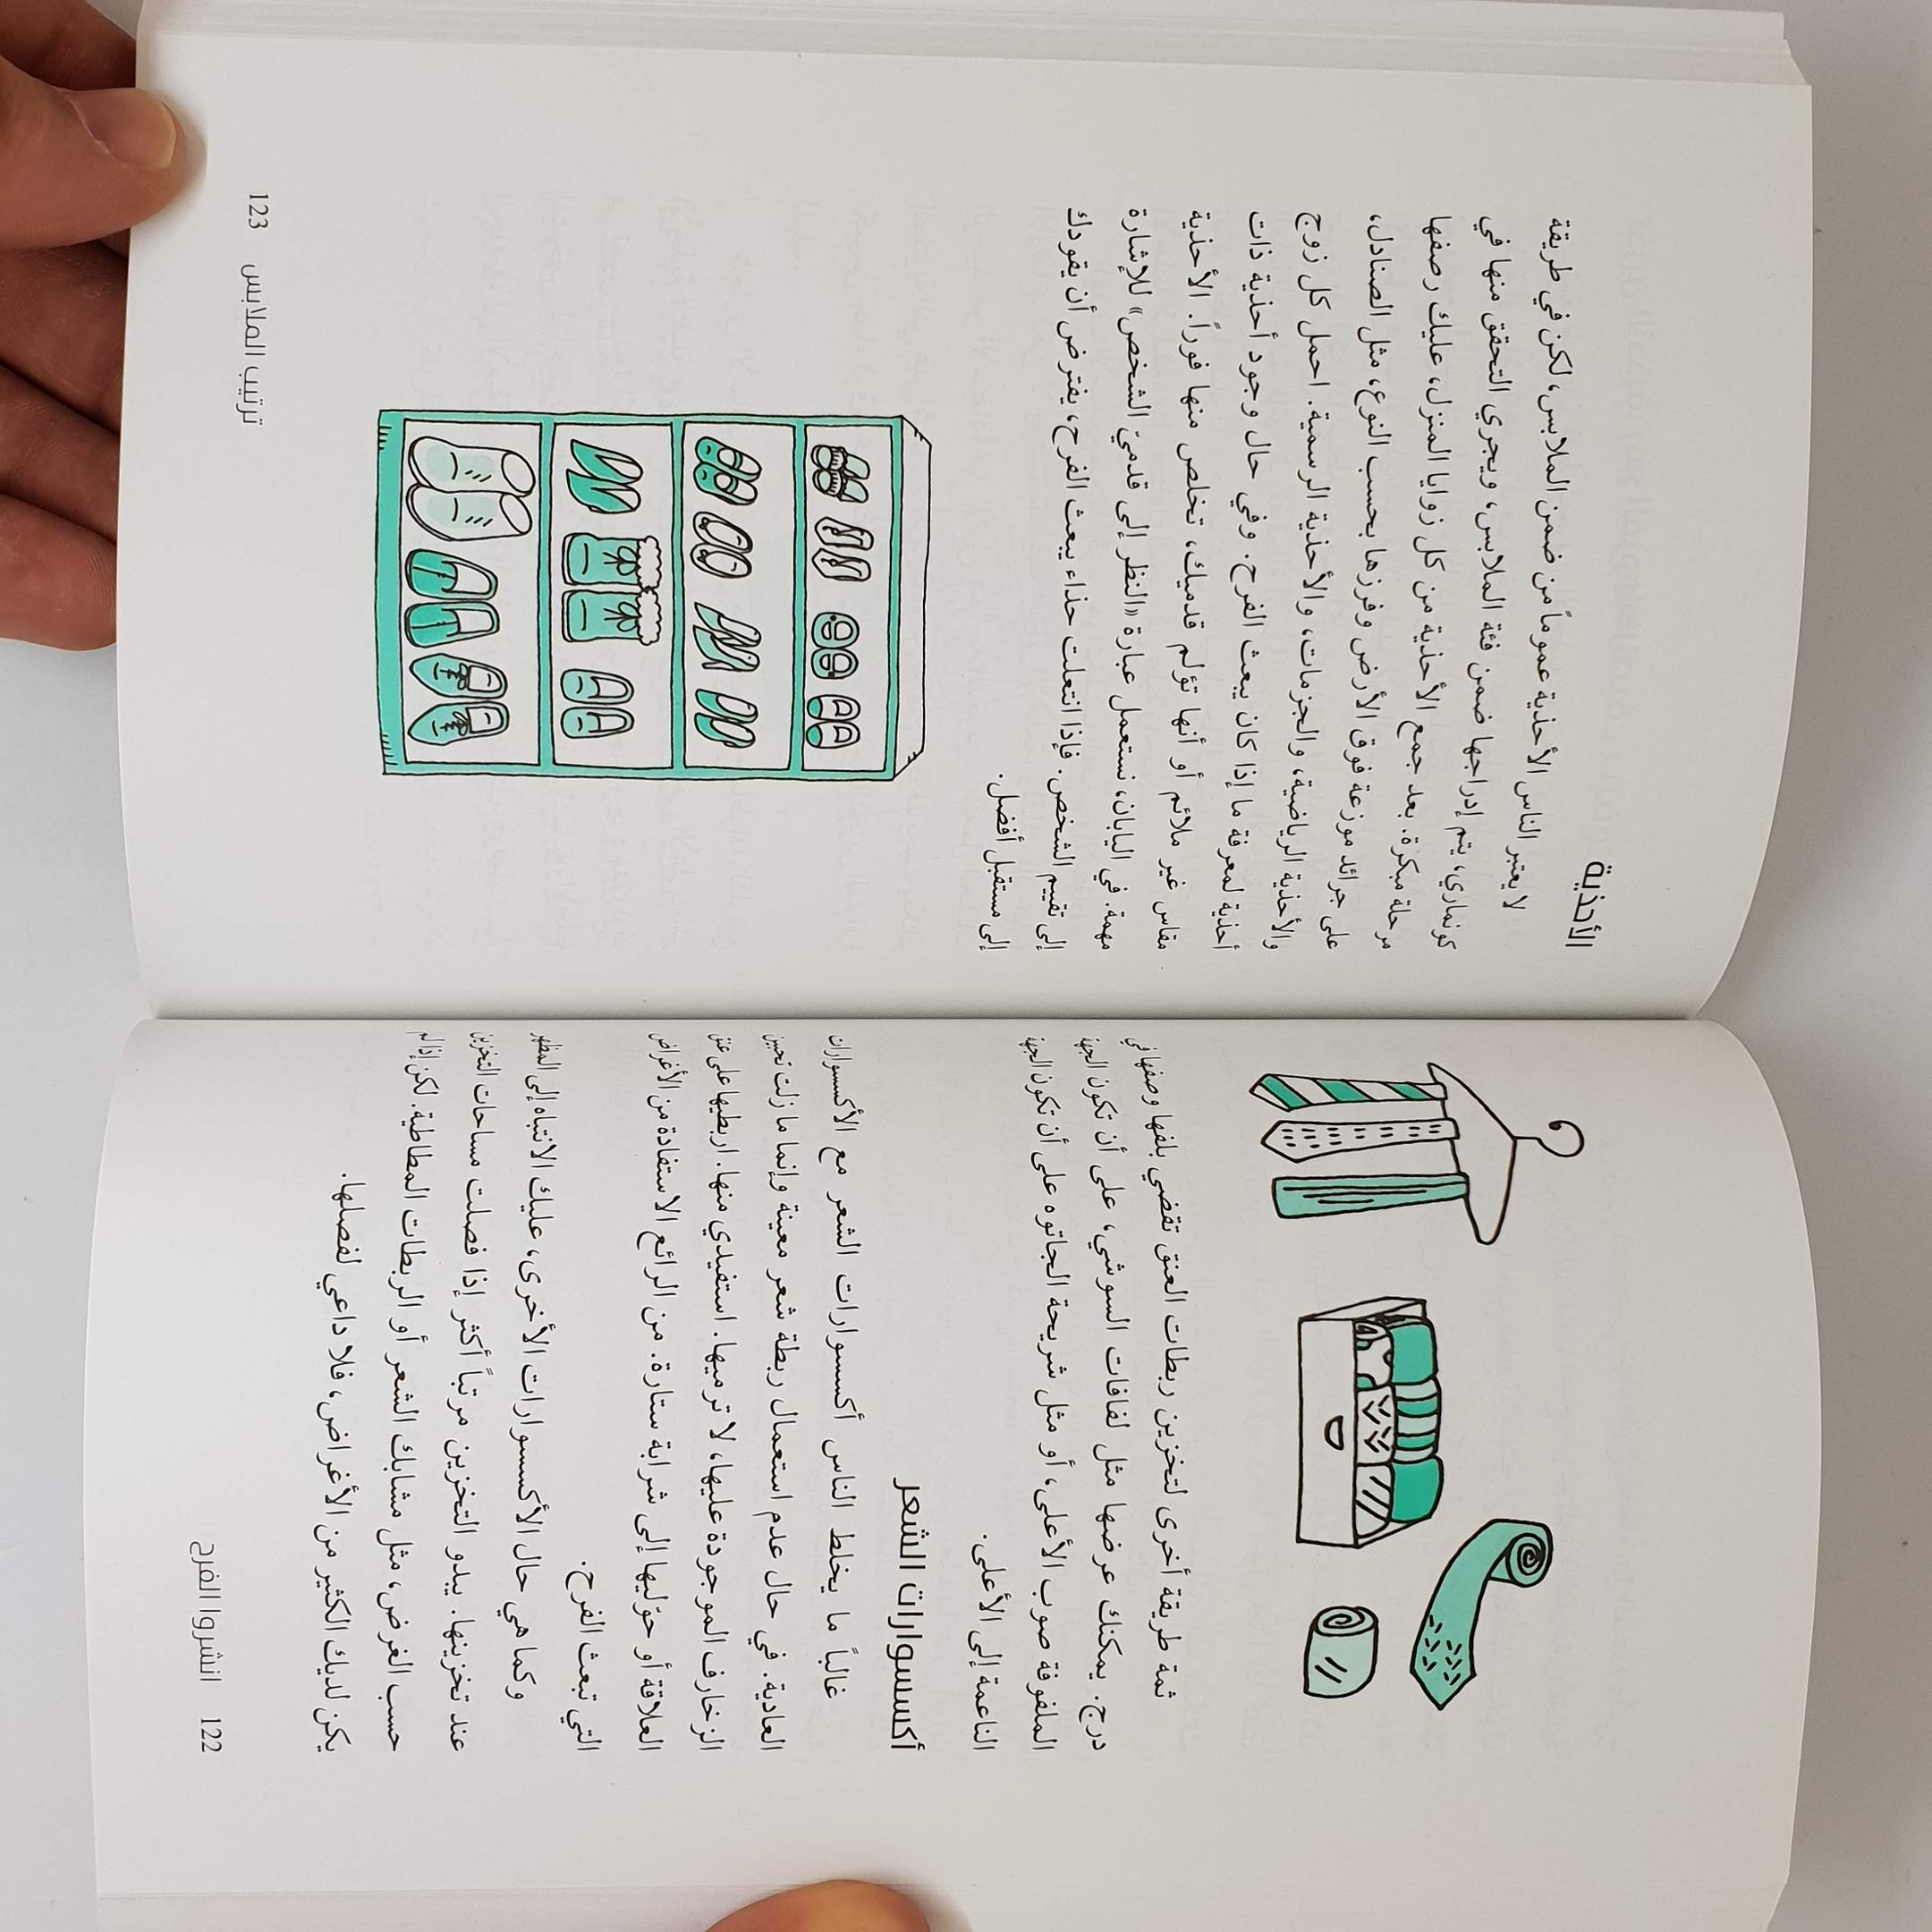 ثمة طريقة أخرى لتخزين ربطات العنق تقضي بلفها وصفها في
درج. يمكنك عرضها مثل لفافات السوشي، على أن تكون الجهة
الملفوفة صوب الأعلى، أو مثل شريحة الجاتوه على أن تكون الجهة
الناعمة إلى الأعلى.
أكسسوارات الشعر
غالباً ما يخلط الناس أكسسوارات الشعر مع الأكسسوارات
العادية. في حال عدم استعمال ربطة شعر معينة وإنما ما زلت تحبين
الزخارف الموجودة عليها، لا ترميها. استفيدي منها. اربطيها على عنق
العلاقة أو حوّليها إلى شرابة ستارة. من الرائع الاستفادة من الأغراض
التي تبعث الفرح.
وكما هي حال الأكسسوارات الأخرى، عليك الانتباه إلى المظهر
عند تخزينها. يبدو التخزين مرتباً أكثر إذا فصلت مساحات التخزين
حسب الغرض، مثل مشابك الشعر أو الربطات المطاطية. لكن إذا لم
يكن لديك الكثير من الأغراض، فلا داعي لفصلها.
122 انشروا الفرح
الأحذية
لا يعتبر الناس الأحذية عموماً من ضمن الملابس، لكن في طريقة
كونماري، يتم إدراجها ضمن فئة الملابس، ويجري التحقق منها في
مرحلة مبكرة. بعد جمع الأحذية من كل زوايا المنزل، عليك رصفها
على جرائد موزعة فوق الأرض وفرزها بحسب النوع، مثل الصنادل،
والأحذية الرياضية، والجزمات، والأحذية الرسمية. احمل كل زوج
أحذية لمعرفة ما إذا كان يبعث الفرح. وفي حال وجود أحذية ذات
مقاس غير ملائم أو أنها تؤلم قدميك، تخلص منها فوراً. الأحذية
مهمة. في اليابان، نستعمل عبارة «النظر إلى قدميّ الشخص» للإشارة
إلى تقييم الشخص. فإذا انتعلت حذاء يبعث الفرح، يفترض أن يقودك
إلى مستقبل أفضل.
ترتيب الملابس 123